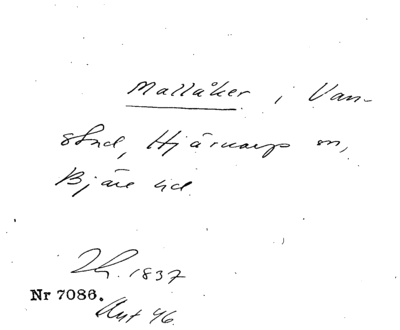 Mallåker i Van-
stad, Hjärnarps sn,
Bjäre hd
Lh. 1837
Nr 7086.
Ant 46